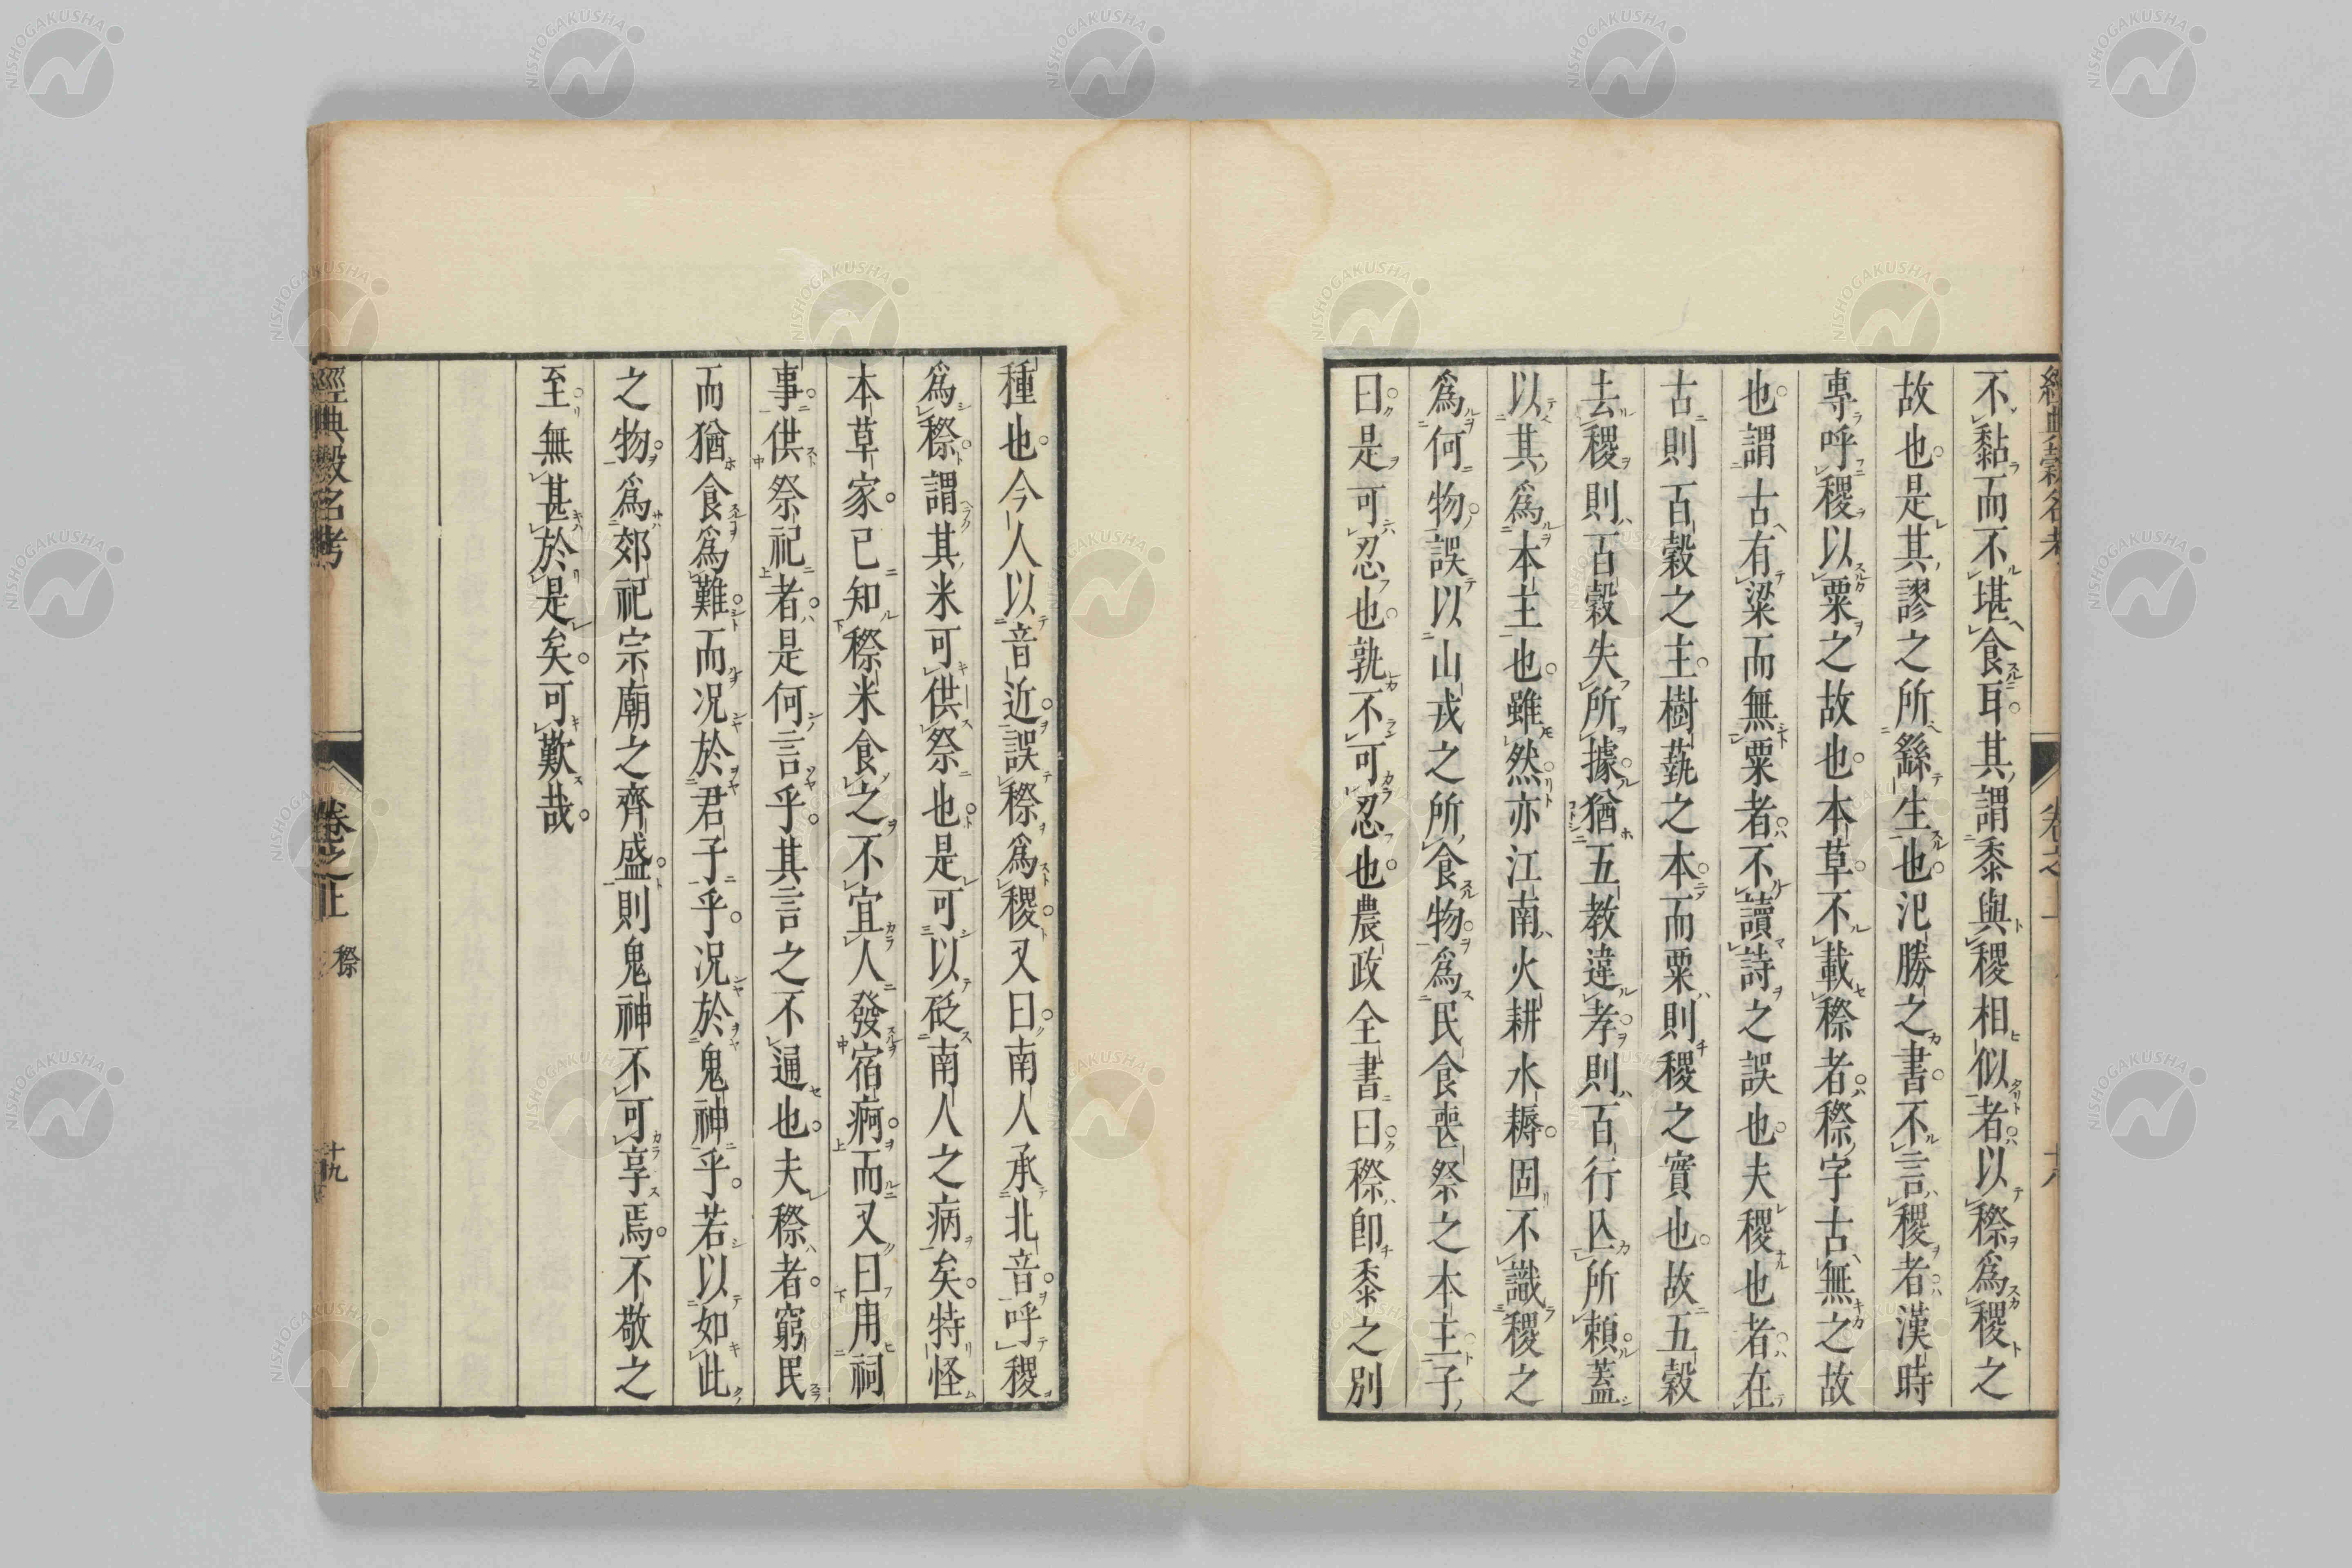 不黏而不堪食耳其謂黍與稷相似者以穄爲稷之
故也是其謬之所繇生也氾勝之書不言稷者漢時
專呼稷以粟之故也本草不載穄者穄字古無之故
也謂古有粱而無粟者不讀詩之誤也夫稷也者在
古則百穀之主樹蓺之本而粟則稷之實也故五穀
去稷則百穀失所據猶五教違孝則百行亾所賴蓋
以其爲本主也雖然亦江南火耕水耨固不識稷之
爲何物誤以山戎之所食物爲民食喪祭之本主子
曰是可忍也孰不可忍也農政全書曰穄即黍之別
種也今人以音近誤穄爲稷又曰南人承北音呼稷
爲穄謂其米可供祭也是可以砭南人之病矣特怪
本草家已知穄米食之不宜人發宿痾而又曰用祠
事供祭祀者是何言乎其言之不逼也夫穄者窮民
而猶食爲難而况於君子乎况於鬼神乎若以如此
之物爲郊祀宗廟之齊盛則鬼神不可享焉不敬之
至無甚於是矣可歎哉
經典穀名考 卷之上 穄 十九